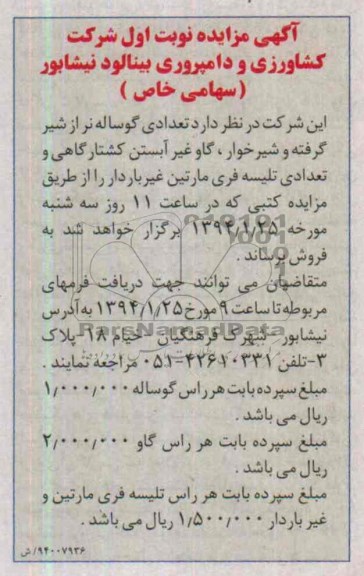 آگهی مزایده نوبت اول شرکت
کشاورزی و دامپروری بینالود نیشابور
(سهامی خاص )
این شرکت در نظر دارد تعدادی گوساله نر از شیر
گرفته و شیرخوار ، گاو غیر آبستن کشتارگاهی و
تعدادی تلیسه فری مارتین غیر باردار را از طریق
مزایده کتبی که در ساعت ۱۱ روز سه شنبه
مورخه ۱۳۹۴/۱/۲۵ برگزار خواهد شد به
فروش برساند .
متقاضیان می توانند جهت دریافت فرمهای
مربوطه تا ساعت ۹ مورخ ۱۳۹۴/۱/۲۵ به آدرس
نیشابور -شهرک فرهنگیان -خیام ۱۸-پلاک
۳-تلفن ۴۲۶۱۰۳۳۱-۰۵۱ مراجعه نمایند .
مبلغ سپرده بابت هر راس گوساله ۱/۰۰۰/۰۰۰
ریال می باشد .
مبلغ سپرده بابت هر راس گاو ۲/۰۰۰/۰۰۰
ریال می باشد .
مبلغ سپرده بابت هر راس تلیسه فری مارتین و
غیر باردار ۱/۵۰۰/۰۰۰ ریال می باشد .
۹۴۰۰۷۹۳۶/ش
ParsNamadData